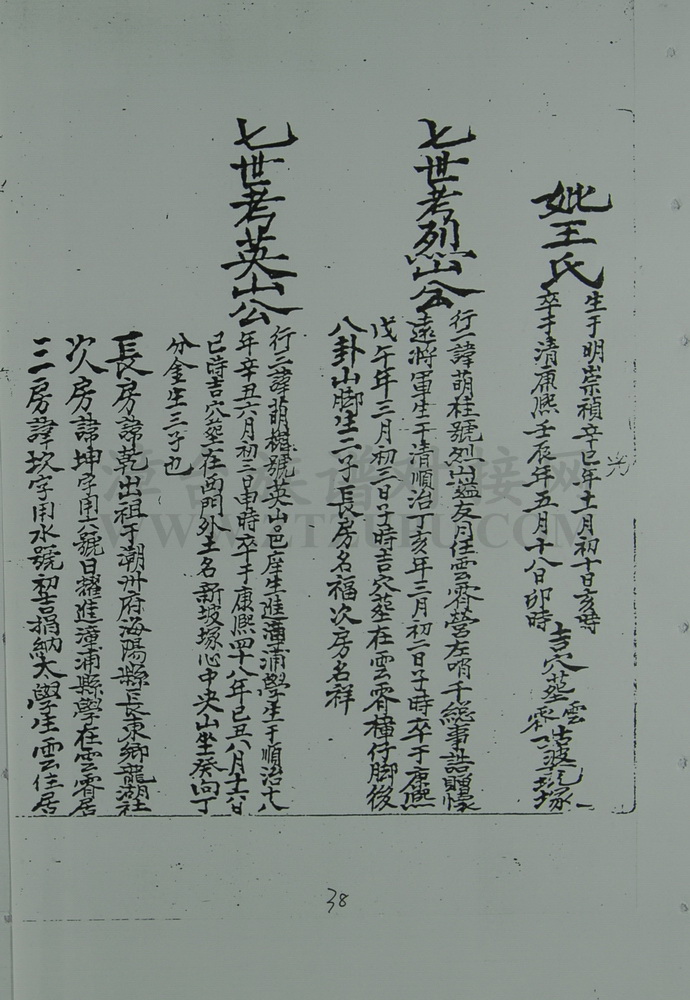 妣王氏
生于明崇禎辛巳年十一月初十日亥時
卒于清康熙壬辰年五月十八日卯時
吉穴葬雲霄
光
七世考烈山公
行一諱萌桂號烈山謚友月任雲霄營左哨千總事誥贈懷
遠將軍生于清順治丁亥年三月初二日子時卒于康熙
戊午年三月初三日子時吉穴葬在雲霄橫仔脚後
八卦山脚生二子長房名福次房名祥
七世考英山公
行三諱萌樹號英山邑庠生進漳浦學生于順治十八
年辛丑六月初三日申時卒于康熙四十八年己丑八月十六日
巳時吉穴葬在西門外土名新坡塚心中央山坐癸向丁
分金生三子也
長房諱乾出祖于潮州府海陽縣長東鄉龍湖社
次房諱坤字用六號日耀進漳浦縣學在雲霄居
三房諱坎字用水號初吉捐納太學生雲住居
38